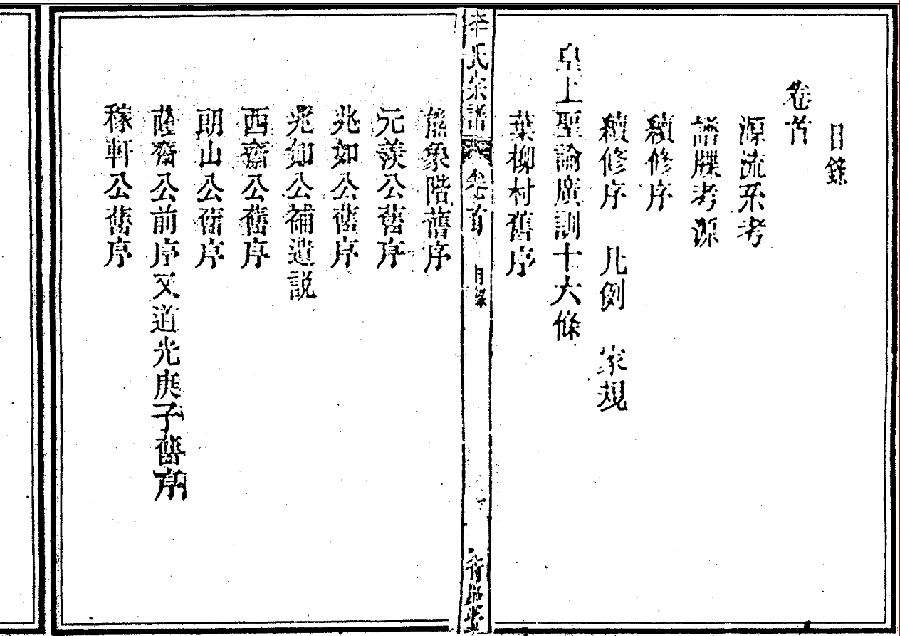 目錄
卷首
源流系考
譜牒考源
續修序
續修序 凡例 家規
皇上聖諭廣訓十六條
葉柳村舊序
辛氏宗譜 卷首 目錄
熊象階舊序
元羨公舊序
兆如公舊序
兆如公補遺說
西齋公舊序
朗山公舊序
薩齋公前序又道光庚子舊序
稼軒公舊序